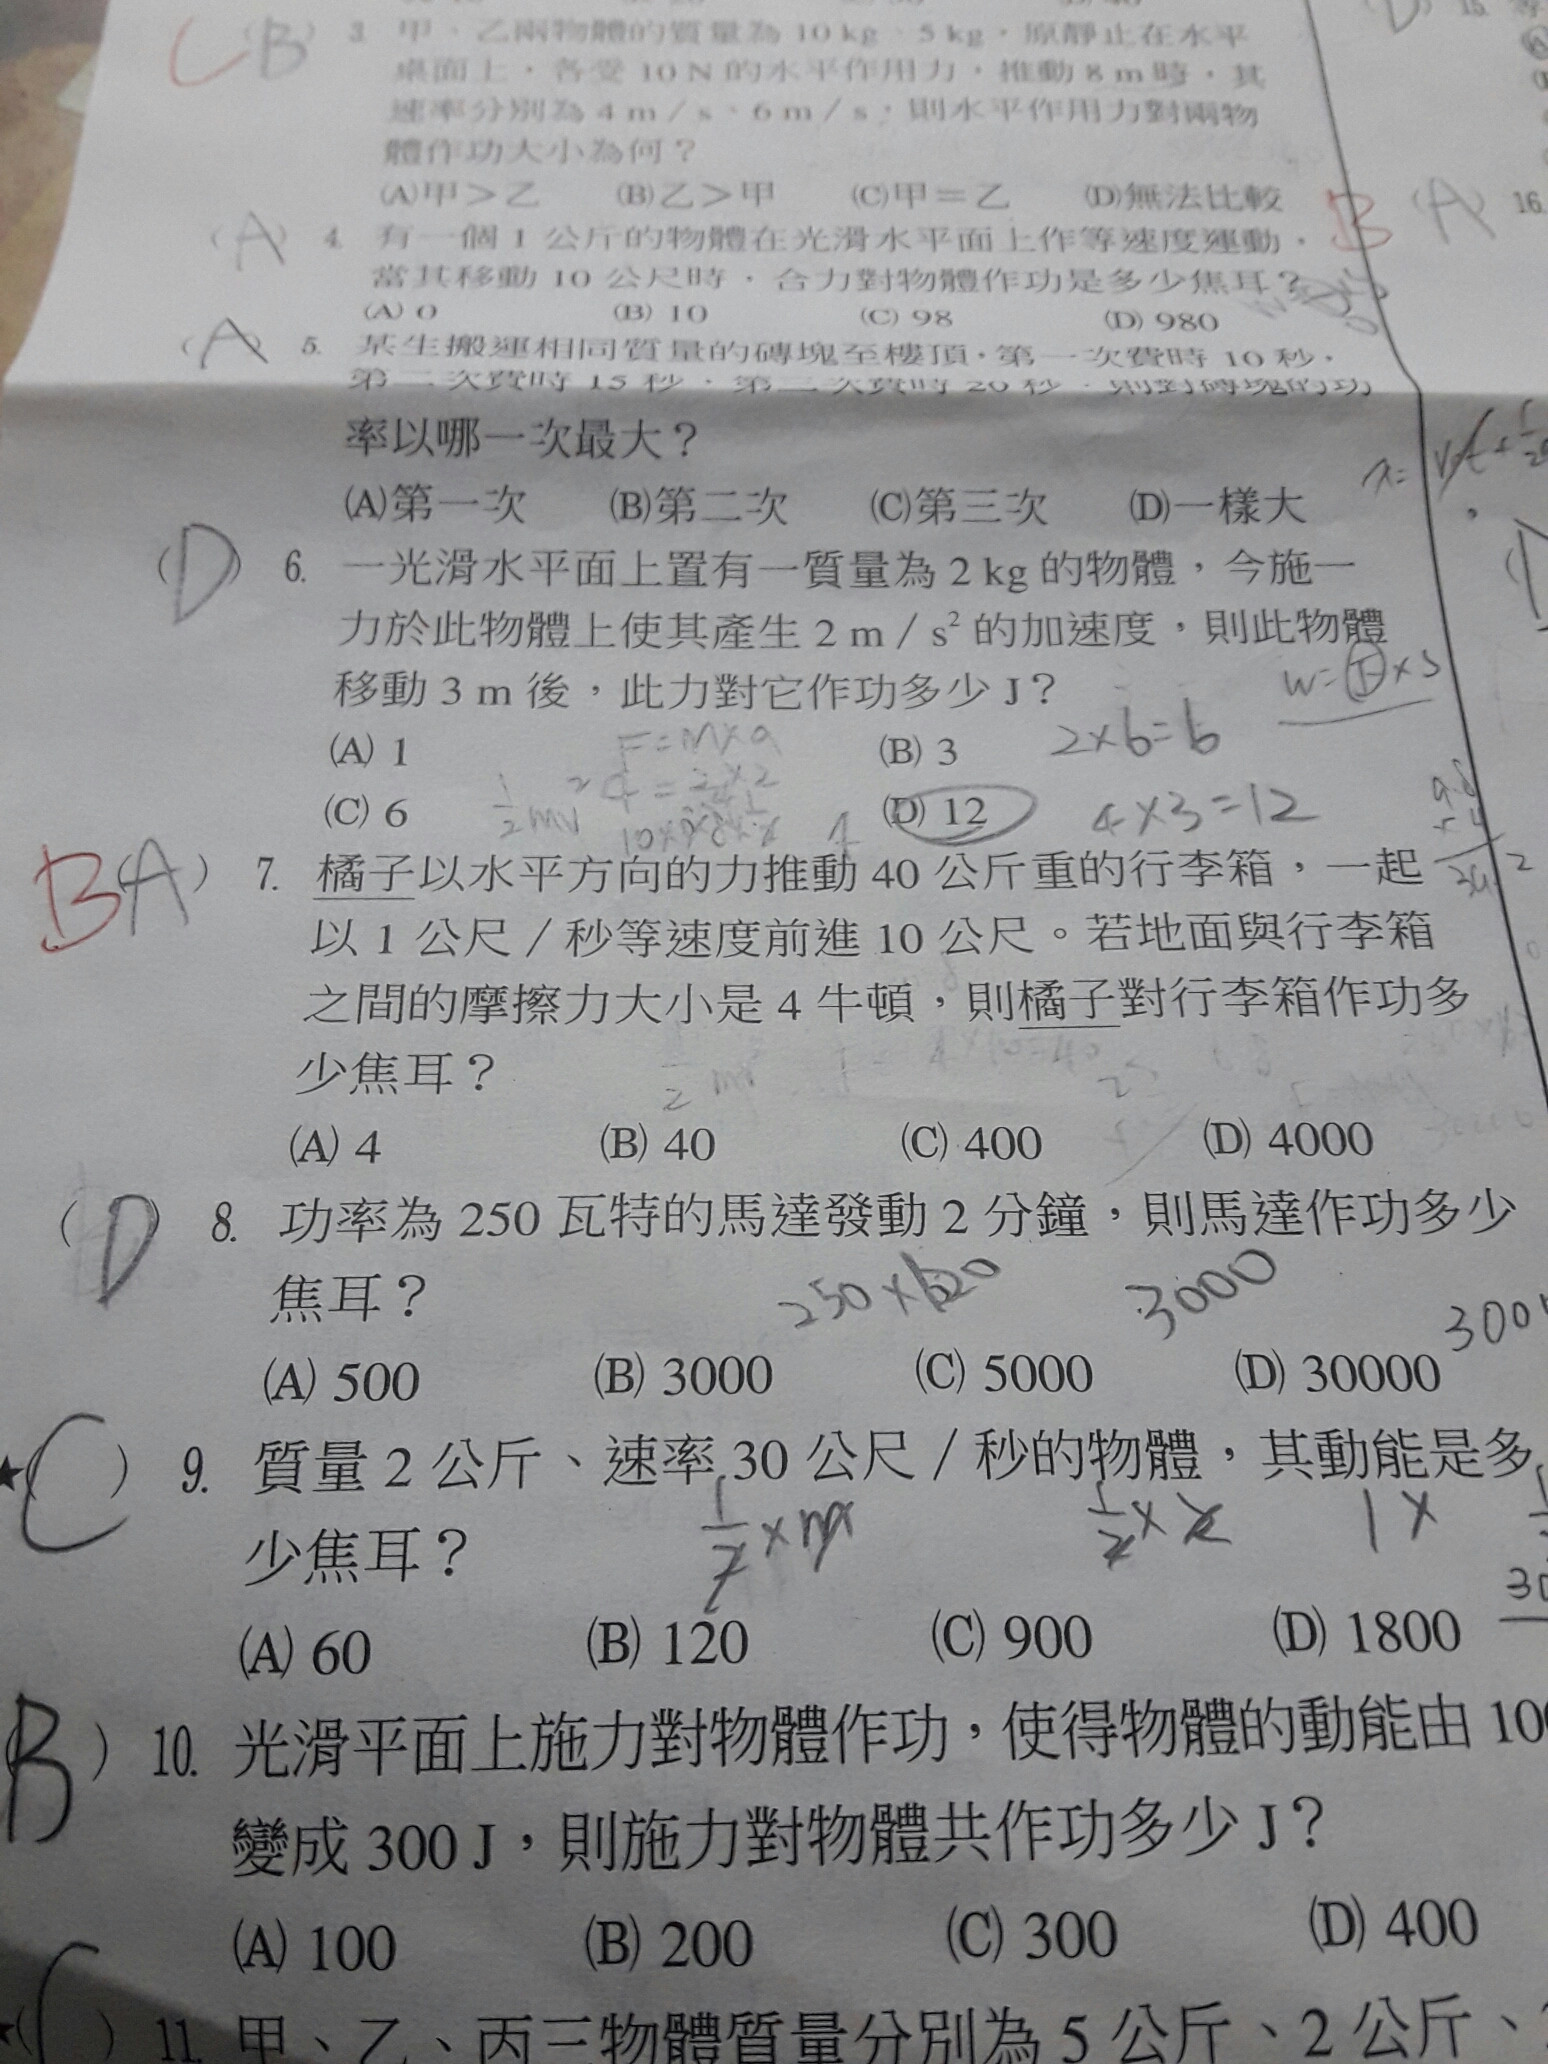 C (B) 3. 甲、乙兩物體的質量為 10 kg、5 kg,原靜止在水平
桌面上,各受 10 N 的水平作用力,推動 8 m 時,其
速率分別為 4 m/s、6 m/s,則水平作用力對兩物
體作功大小為何?
(A)甲>乙 (B)乙>甲 (C)甲=乙 (D)無法比較
(A) 4. 有一個 1 公斤的物體在光滑水平面上作等速度運動,
當其移動 10 公尺時,合力對物體作功是多少焦耳?
(A) 0 (B) 10 (C) 98 (D) 980
(A) 5. 某生搬運相同質量的磚塊至樓頂,第一次費時 10 秒,
第二次費時 15 秒,第三次費時 20 秒,則對磚塊的功
率以哪一次最大?
(A)第一次 (B)第二次 (C)第三次 (D)一樣大
(D) 6. 一光滑水平面上置有一質量為 2 kg 的物體,今施一
力於此物體上使其產生 2 m/s² 的加速度,則此物體
移動 3 m 後,此力對它作功多少 J?
(A) 1 F=m×a (B) 3 2×6=6
(C) 6 4=2×2 (D) 12 4×3=12
B (A) 7. 橘子以水平方向的力推動 40 公斤重的行李箱,一起
以 1 公尺/秒等速度前進 10 公尺。若地面與行李箱
之間的摩擦力大小是 4 牛頓,則橘子對行李箱作功多
少焦耳?
4×10=40
(A) 4 (B) 40 (C) 400 (D) 4000
(D) 8. 功率為 250 瓦特的馬達發動 2 分鐘,則馬達作功多少
焦耳?
3000
(A) 500 (B) 3000 (C) 5000 (D) 30000
★(C) 9. 質量 2 公斤、速率 30 公尺/秒的物體,其動能是多
少焦耳?
(A) 60 (B) 120 (C) 900 (D) 1800
(B) 10. 光滑平面上施力對物體作功,使得物體的動能由 100
變成 300 J,則施力對物體共作功多少 J?
(A) 100 (B) 200 (C) 300 (D) 400
★(C) 11. 甲、乙、丙三物體質量分別為 5 公斤、2 公斤、
(D) 15.
B (A) 16.